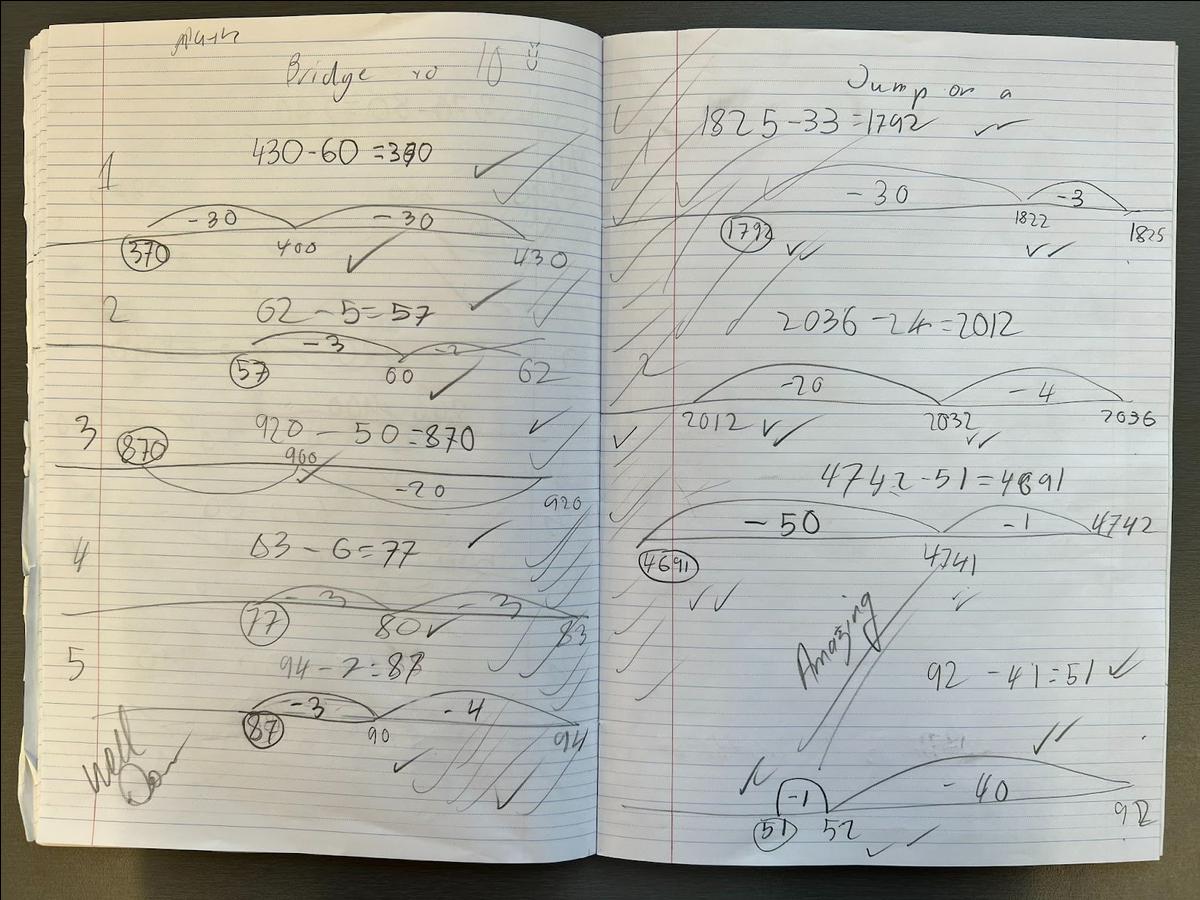 Math
Bridge to 10
1
430-60 =370
-30 -30
370 400 430
2
62 - 5= 57
-3 -2
57 60 62
3
920 - 50 =870
870 900
-20
920
4
83 - 6=77
-3 -3
77 80 83
5
94 - 7=87
-3 -4
87 90 94
Well
Jump on a
1
1825-33=1792
-30 -3
1792 1822 1825
2036 -24=2012
2
-20 -4
2012 2032 2036
4742 -51=4691
-50 -1 4742
4691 4741
Amazing
92 -41=51
-1 -40
51 52 92